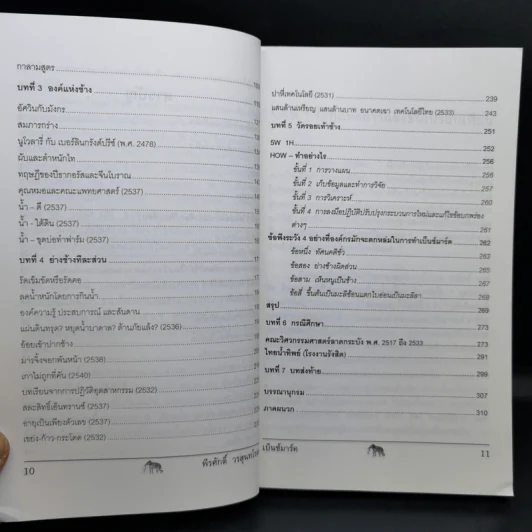 กาลามสูตร
บทที่ 3 องค์แห่งช้าง
อัศวินกับมังกร
สมภารกร่าง
นูโวลารี กับ เบอร์ลินกรังด์ปรีซ์ (พ.ศ. 2478)
ผีบและตำหนักไท
ทฤษฎีของปีธากอรัสและจีนโบราณ
คุณหมอและคณะแพทยศาสตร์ (2537)
น้ำ – ดี (2537)
น้ำ – ใต้ดิน (2537)
น้ำ – ขุดบ่อทำฟาร์ม (2537)
บทที่ 4 ย่างช้างทีละส่วน
รัดเข็มขัดหรือรัดคอ
ลดน้ำหนักโดยการกินน้ำ
องค์ความรู้ ประสบการณ์ และสันดาน
แผ่นดินทรุด? หยุดน้ำบาดาล? ต้านภัยแล้ง? (2536)
อ้อยเข้าปากช้าง
ม่ารจิ้งจยกพันหน้า (2538)
เกาไม่ถูกที่คัน (2540)
บทเรียนจากการปฏิวัติอุตสาหกรรม (2532)
สละสิทธิ์เอ็นทรานซ์ (2537)
อายุเป็นเพียงตัวเลข (2537)
เขย่ง-ก้าว-กระโดด (2532)
10 พีรศักดิ์ วรสุนทโร
ปาหี่เทคโนโลยี (2531) 239
แสนล้านเหรียญ แสนล้านบาท อนาคตเขา เทคโนโลยีไทย (2533) 243
บทที่ 5 วัดรอยเท้าช้าง 251
5W 1H 252
HOW – ทำอย่างไร 256
ขั้นที่ 1 การวางแผน 256
ขั้นที่ 2 เก็บข้อมูลและทำการวิจัย 257
ขั้นที่ 3 การวิเคราะห์ 258
ขั้นที่ 4 การลงมือปฏิบัติปรับปรุงกระบวนการใหม่และแก้ไขข้อบกพร่อง
ต่างๆ 260
ข้อพึงระวัง 4 อย่างที่องค์กรมักจะตกหล่มในการทำเบ็นช์มาร์ค 262
ข้อหนึ่ง ทัศนคติชั่ว 263
ข้อสอง ย่างช้างผิดส่วน 265
ข้อสาม เห็นหนูเป็นช้าง 267
ข้อสี่ ขึ้นต้นเป็นมะลิซ้อนแตกใบอ่อนเป็นมะลิลา 268
สรุป 269
บทที่ 6 กรณีศึกษา 273
คณะวิศวกรรมศาสตร์ลาดกระบัง พ.ศ. 2517 ถึง 2533 273
ไทยน้ำทิพย์ (โรงงานรังสิต) 291
บทที่ 7 บทส่งท้าย 299
บรรณานุกรม 307
ภาคผนวก 310
เบ็นช์มาร์ค 11